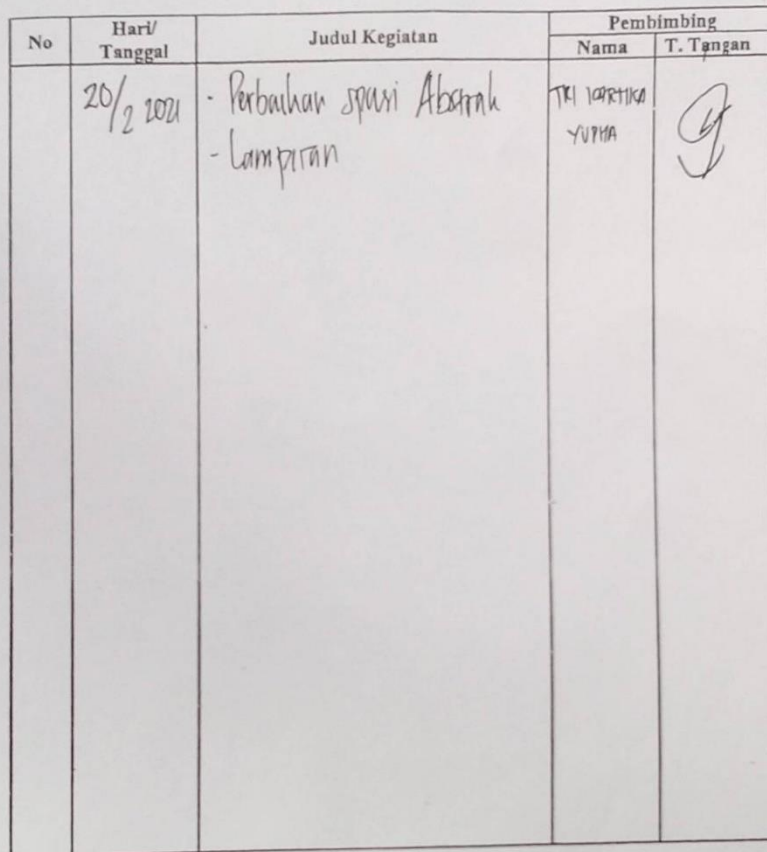 No
Hari/
Tanggal
Judul Kegiatan
Pembimbing
Nama
T. Tangan
20/2 2021
- Perbaikan spasi Abstrak
- Lampiran
TRI KARTIKA
YUPHA